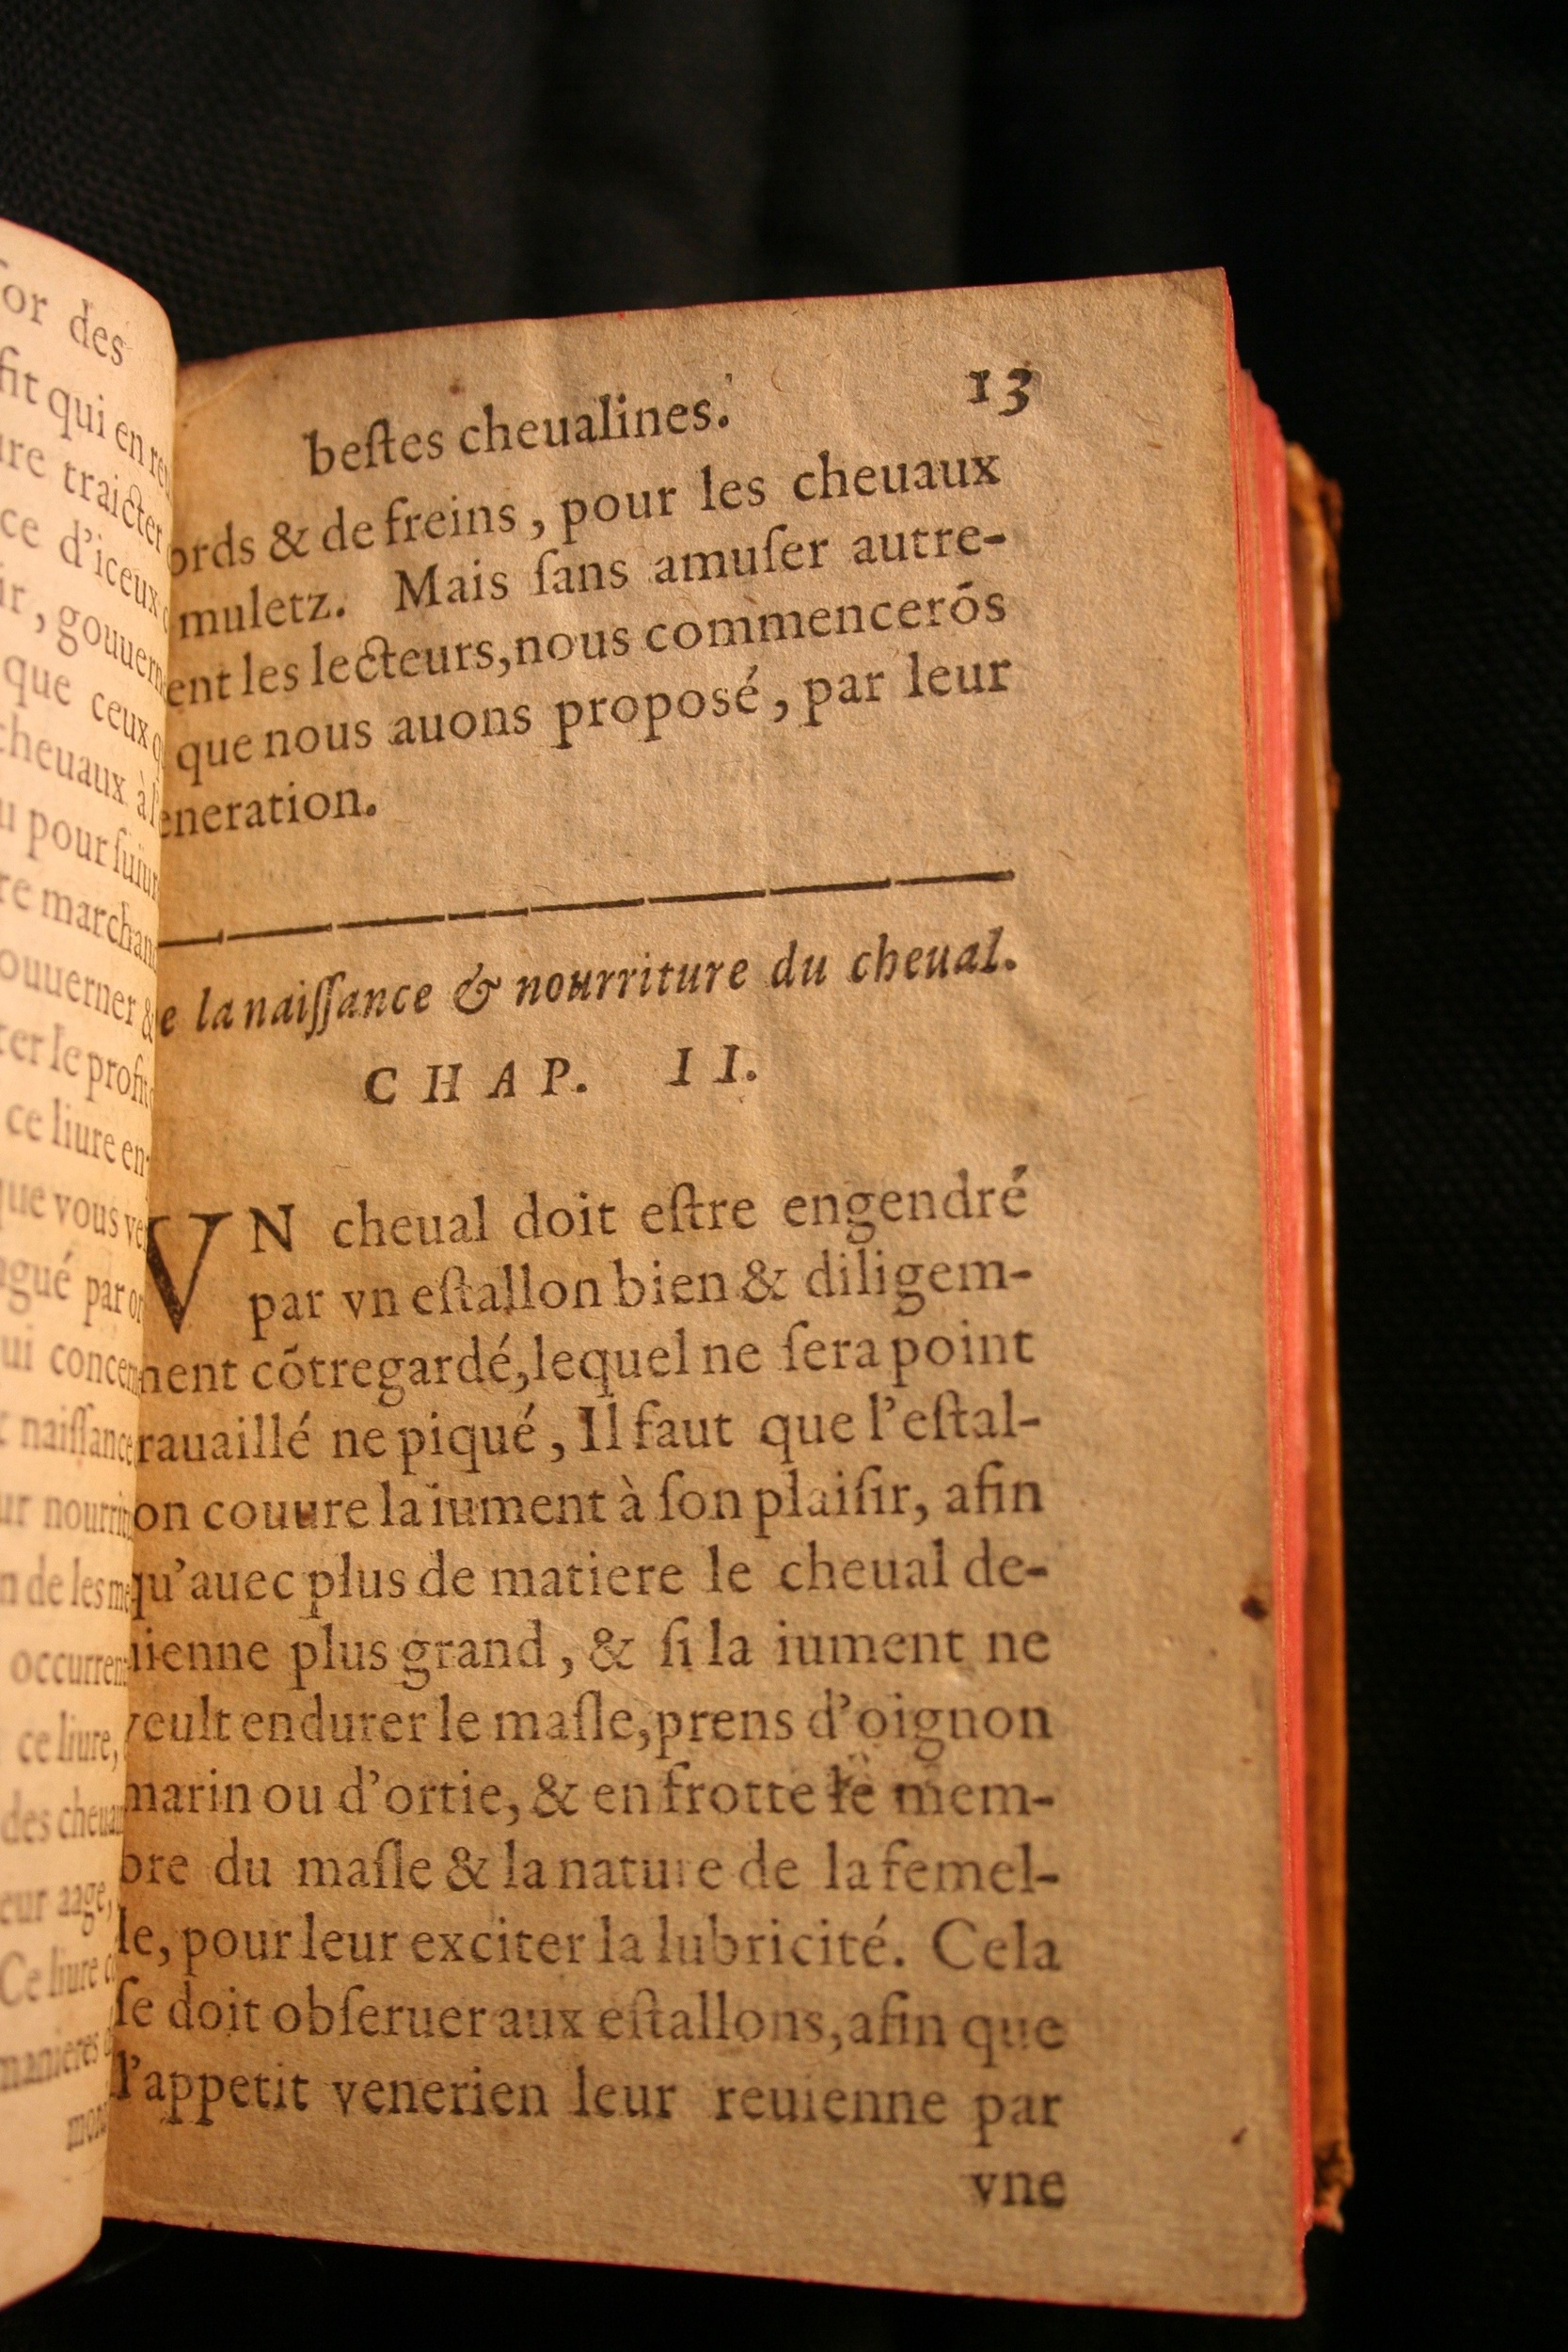 or des
fit qui en
traicter
ce d'iceux
ir, gouuern
que ceux
cheuaux à
pour suiure
re marchan
ouuerner &
ter le profit
ce liure en
que vous
gué par
ui concer
naiſſance
ur nourrit
n de les
occurren
ce liure,
des cheua
eur aage,
Ce liure
manieres
beſtes cheualines. 13
ords & de freins, pour les cheuaux
muletz. Mais ſans amuſer autre-
ent les lecteurs, nous commencerõs
que nous auons proposé, par leur
eneration.
e la naiſſance & nourriture du cheual.
CHAP. II.
VN cheual doit eſtre engendré
par vn eſtallon bien & diligem-
ment cõtregardé, lequel ne ſera point
rauaillé ne piqué, Il faut que l'eſtal-
on couure la iument à ſon plaiſir, afin
qu'auec plus de matiere le cheual de-
uienne plus grand, & ſi la iument ne
veult endurer le maſle, prens d'oignon
marin ou d'ortie, & en frotte le mem-
bre du maſle & la nature de la femel-
le, pour leur exciter la lubricité. Cela
ſe doit obſeruer aux eſtallons, afin que
l'appetit venerien leur reuienne par
vne